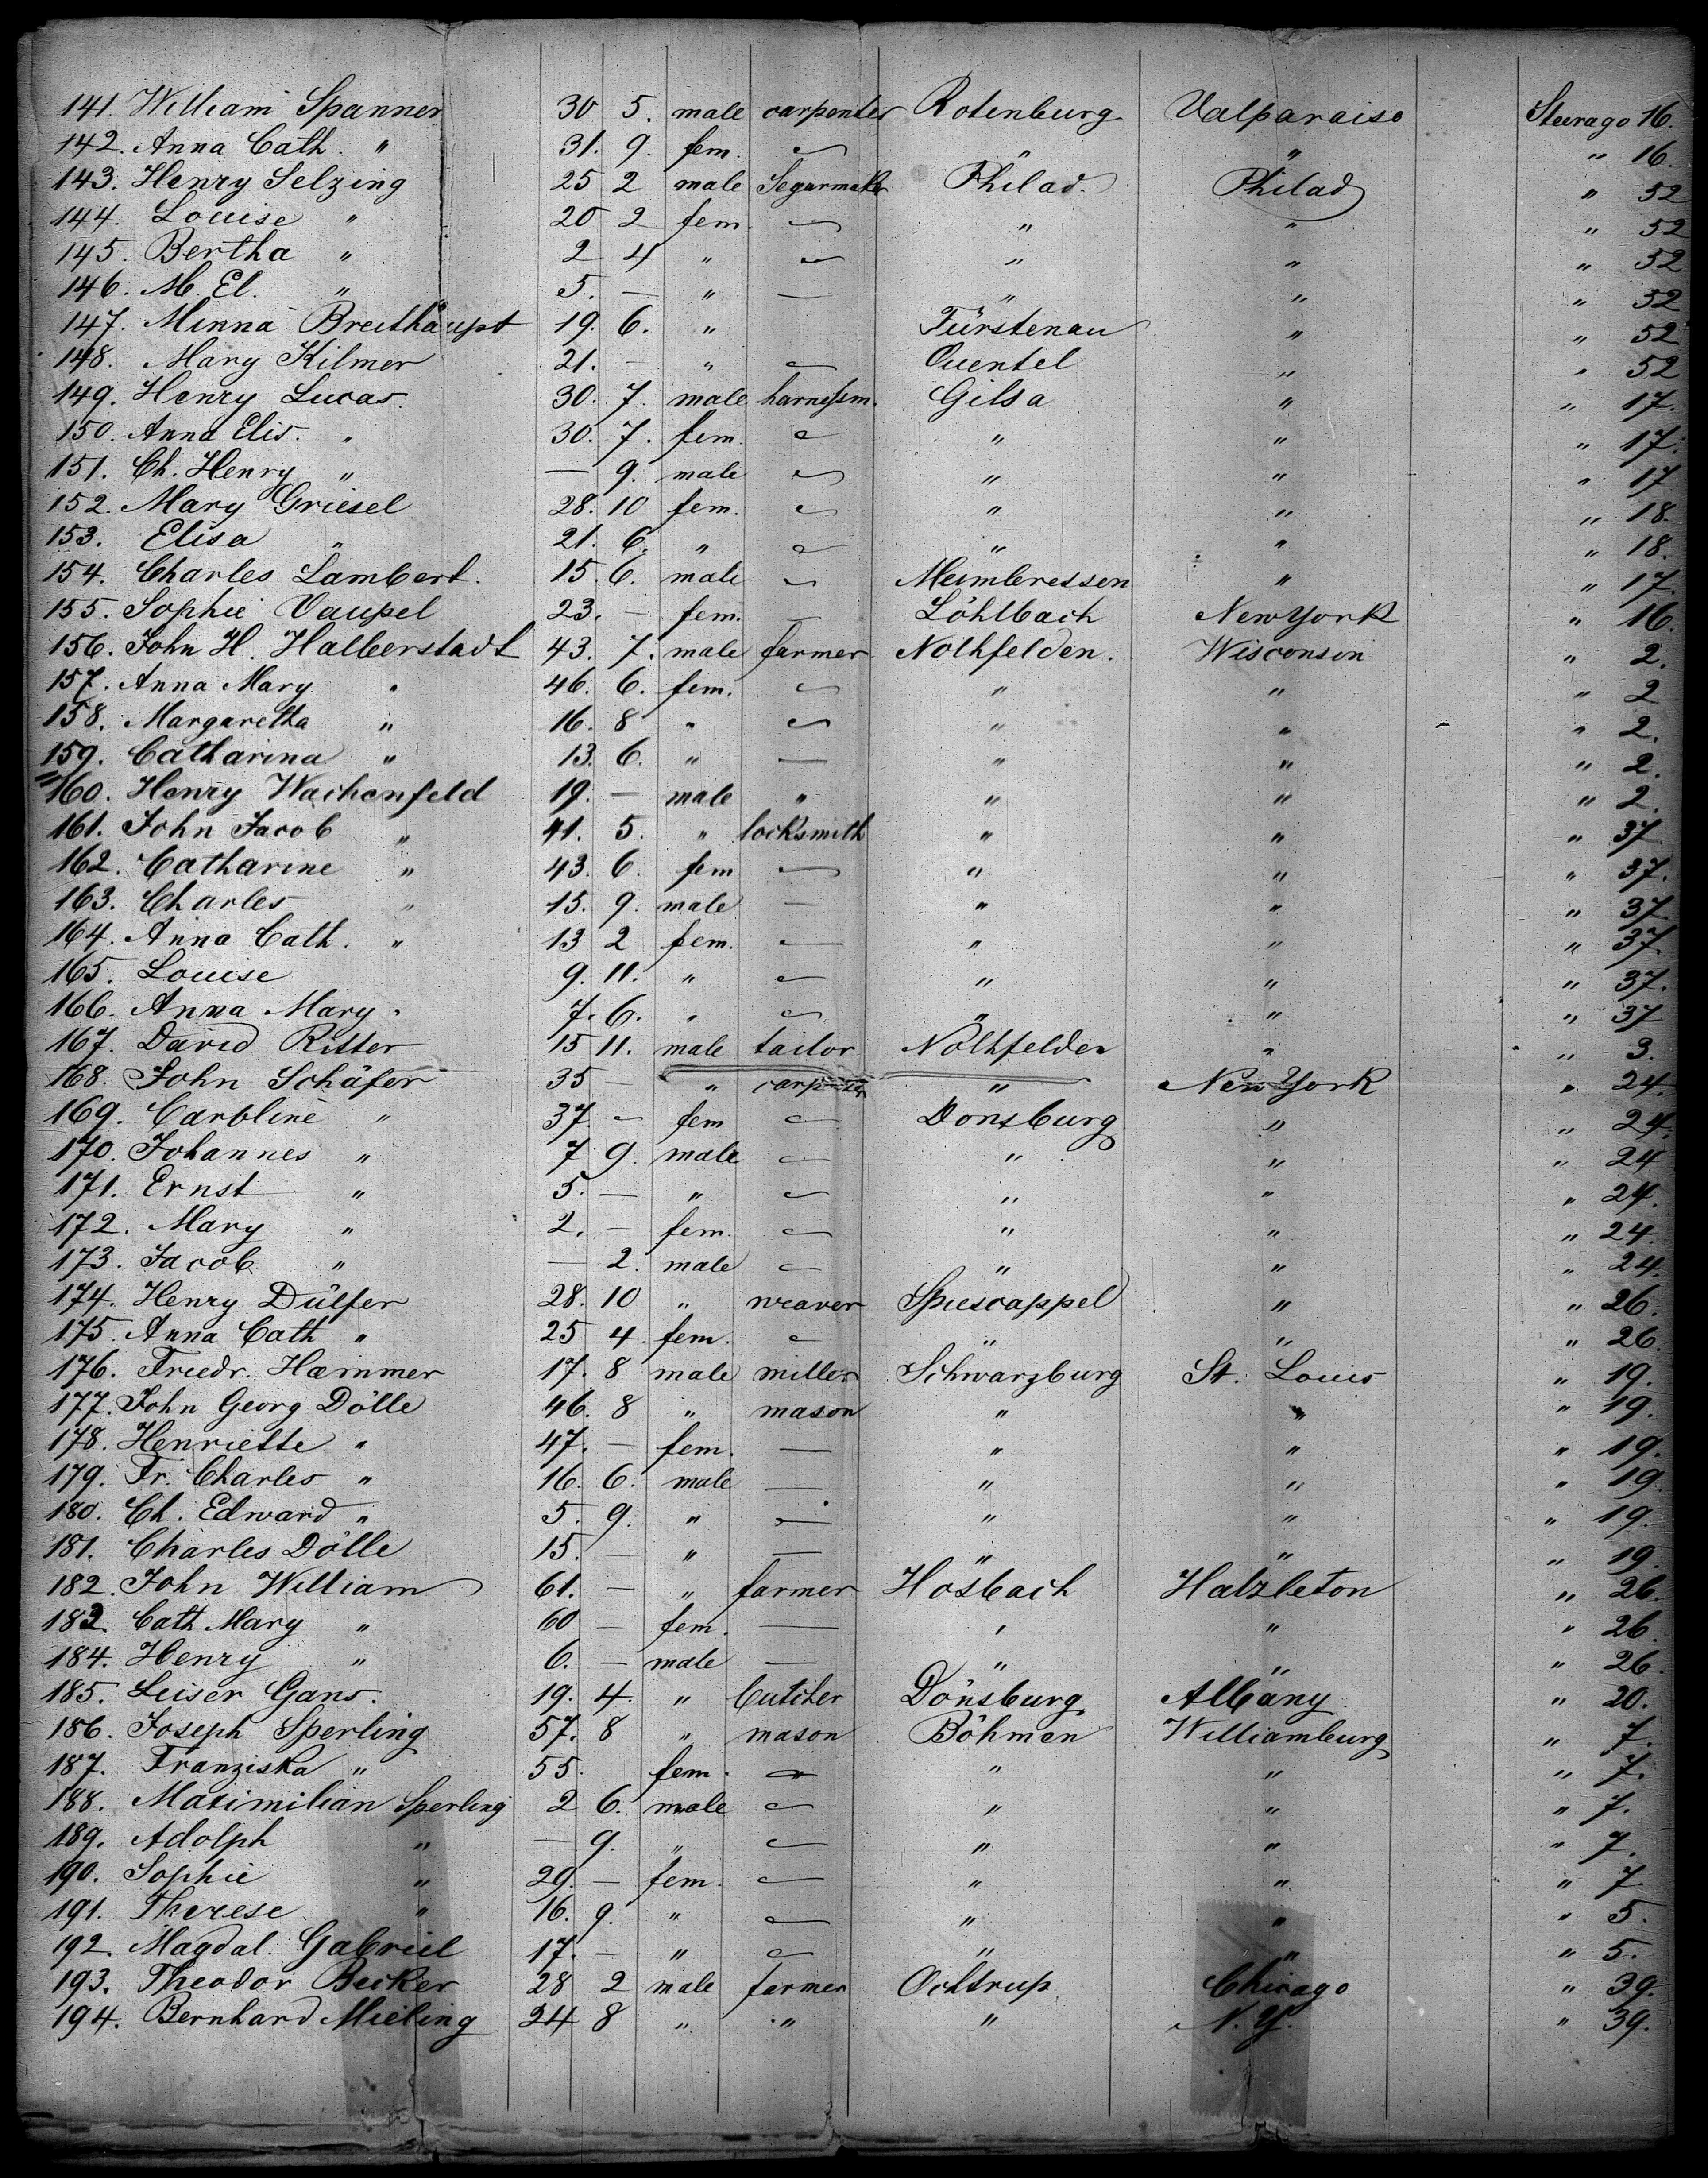 141. William Spanner 30 5. male carpenter Rotenburg Valparaiso Steerage 16.
142. Anna Cath. " 31. 9. fem. — " " " 16.
143. Henry Selzing 25 2 male Segarmakr Philad. Philad " 52
144. Louise " 20 2 fem. — " " " 52
145. Bertha " 2 4 " — " " " 52
146. M. El. " 5. — " — " " " 52
147. Minna Breithaupt 19. 6. " Fürstenau " " 52
148. Mary Kilmer 21. — " — Quentel " " 52
149. Henry Lucas. 30. 7. male harnessm. Gilsa " " 17.
150. Anna Elis. " 30. 7. fem. — " " " 17.
151. Ch. Henry " — 9. male — " " " 17
152. Mary Griesel 28. 10 fem. — " " " 18.
153. Elisa " 21. 6. " — " " " 18.
154. Charles Lambert. 15. 6. male — Meimbressen " " 17.
155. Sophie Vaupel 23. — fem. — Löhlbach New York " 16.
156. John H. Halberstadt 43. 7. male farmer Nothfelden. Wisconsin " 2.
157. Anna Mary " 46. 6. fem. — " " " 2
158. Margaretha " 16. 8 " — " " " 2.
159. Catharina " 13. 6. " — " " " 2.
160. Henry Wachenfeld 19. — male " " " " 2.
161. John Jacob " 41. 5. " locksmith " " " 37
162. Catharine " 43. 6. fem — " " " 37.
163. Charles " 15. 9. male — " " " 37
164. Anna Cath. " 13 2 fem. — " " " 37.
165. Louise 9. 11. " — " " " 37.
166. Anna Mary " 7. 6. " — " " " 37
167. David Ritter 15 11. male tailor Nothfelden " " 3.
168. John Schäfer 35 — " carpenter " New York " 24.
169. Carolinè " 37. — fem — Donsburg " " 24.
170. Johannes " 7 9. male — " " " 24
171. Ernst " 5. — " — " " " 24.
172. Mary " 2. — fem. — " " " 24.
173. Jacob " — 2. male — " " " 24.
174. Henry Dülfer 28. 10 " weaver Spiescappel " " 26.
175. Anna Cath " 25 4. fem. — " " " 26.
176. Friedr. Hammer 17. 8 male miller Schwarzburg St. Louis " 19.
177. John Georg Dölle 46. 8 " mason " " " 19.
178. Henriette " 47. — fem. — " " " 19.
179. Fr. Charles " 16. 6. male — " " " 19
180. Ch. Edward " 5. 9. " — " " " 19.
181. Charles Dölle 15. — " — " " " 19.
182. John William 61. — " farmer Hosbach Halzleton " 26.
183. Cath Mary " 60 — fem. — " " " 26.
184. Henry " 6. — male — " " " 26.
185. Leiser Gans. 19. 4. " butcher Dönsburg Albany " 20.
186. Joseph Sperling 57. 8 " mason Böhmen Williamburg " 7.
187. Franziska " 55. fem. — " " " 7.
188. Maximilian Sperling 2 6. male — " " " 7.
189. Adolph " — 9. " — " " " 7.
190. Sophie " 29. — fem. — " " " 7.
191. Therese " 16. 9. " — " " " 5.
192. Magdal. Gabriel 17. — " — " " " 5.
193. Theodor Becker 28 2 male farmer Ochtrup Chicago " 39.
194. Bernhard Mieling 24 8 " " " N. Y. " 39.